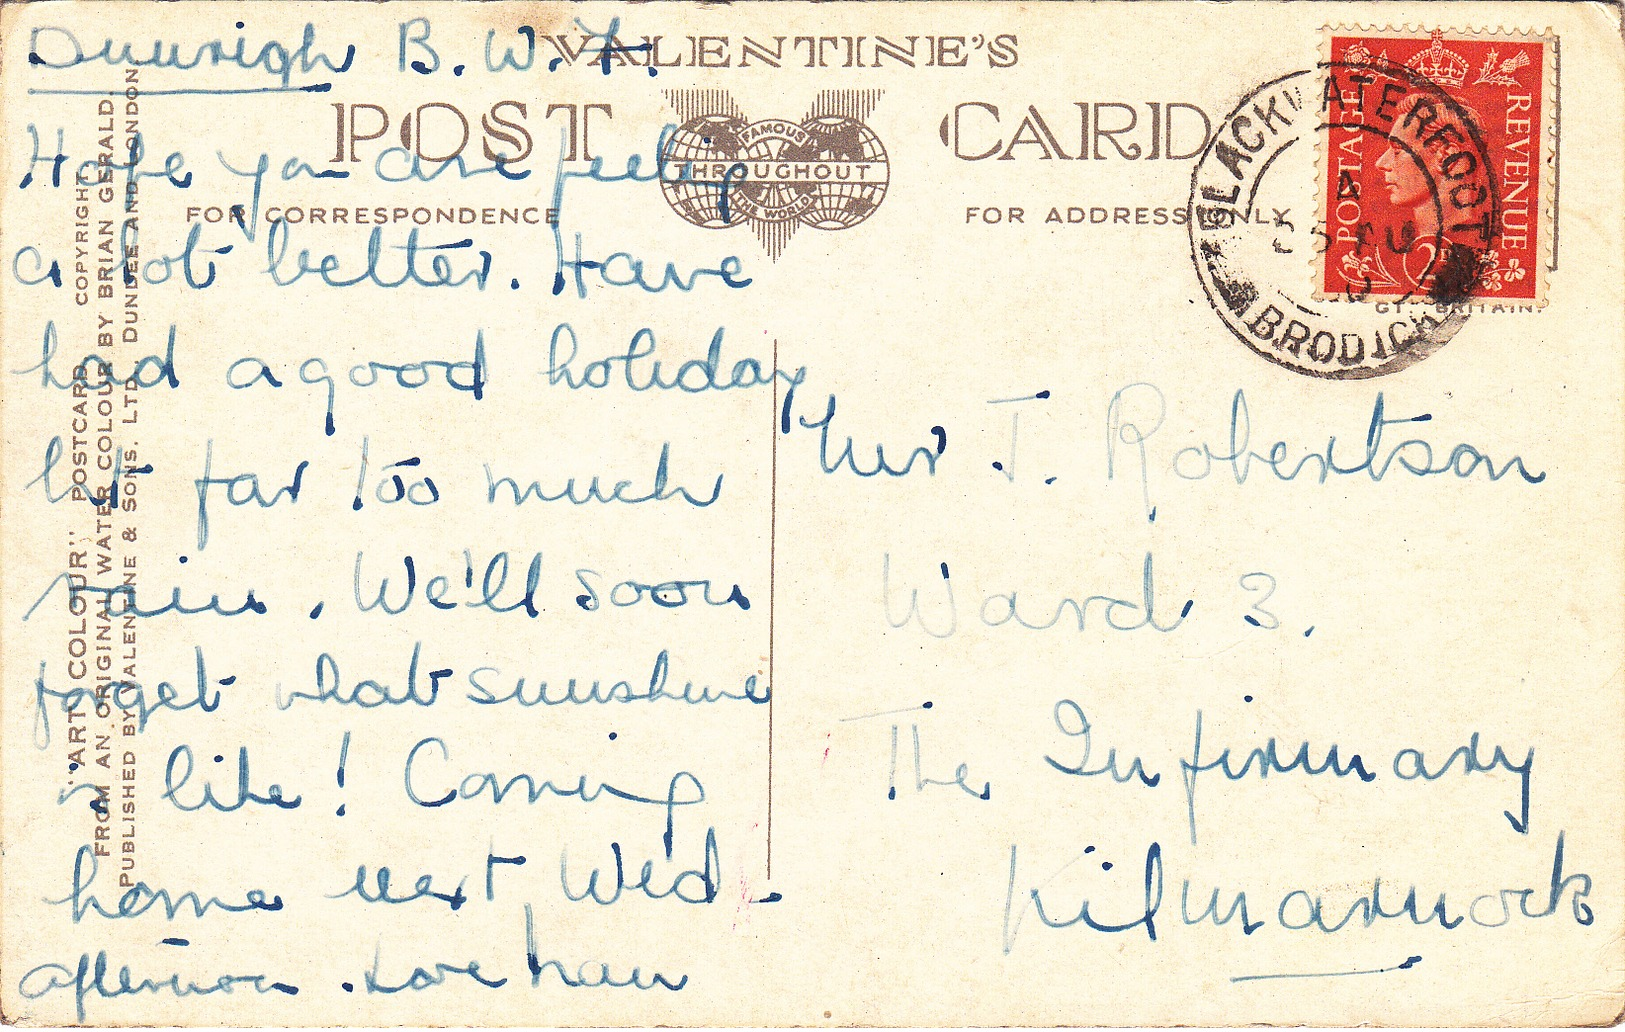 Dunvigh B. W. F.
Hope you are feeling
a lot better. Have
had a good holiday
but far too much
rain. We'll soon
forget what sunshine
is like! Coming
home next Wed.
afternoon. Love Nan
VALENTINE'S
POST CARD
FAMOUS
THROUGHOUT
THE WORLD
FOR CORRESPONDENCE
FOR ADDRESS ONLY
"ART COLOUR" POSTCARD COPYRIGHT
FROM AN ORIGINAL WATER COLOUR BY BRIAN GERALD.
PUBLISHED BY VALENTINE & SONS. LTD. DUNDEE AND LONDON
POSTAGE
REVENUE
BLACKWATERFOOT
BRODICK
GT. BRITAIN.
Mrs T. Robertson
Ward 3.
The Infirmary
Kilmarnock